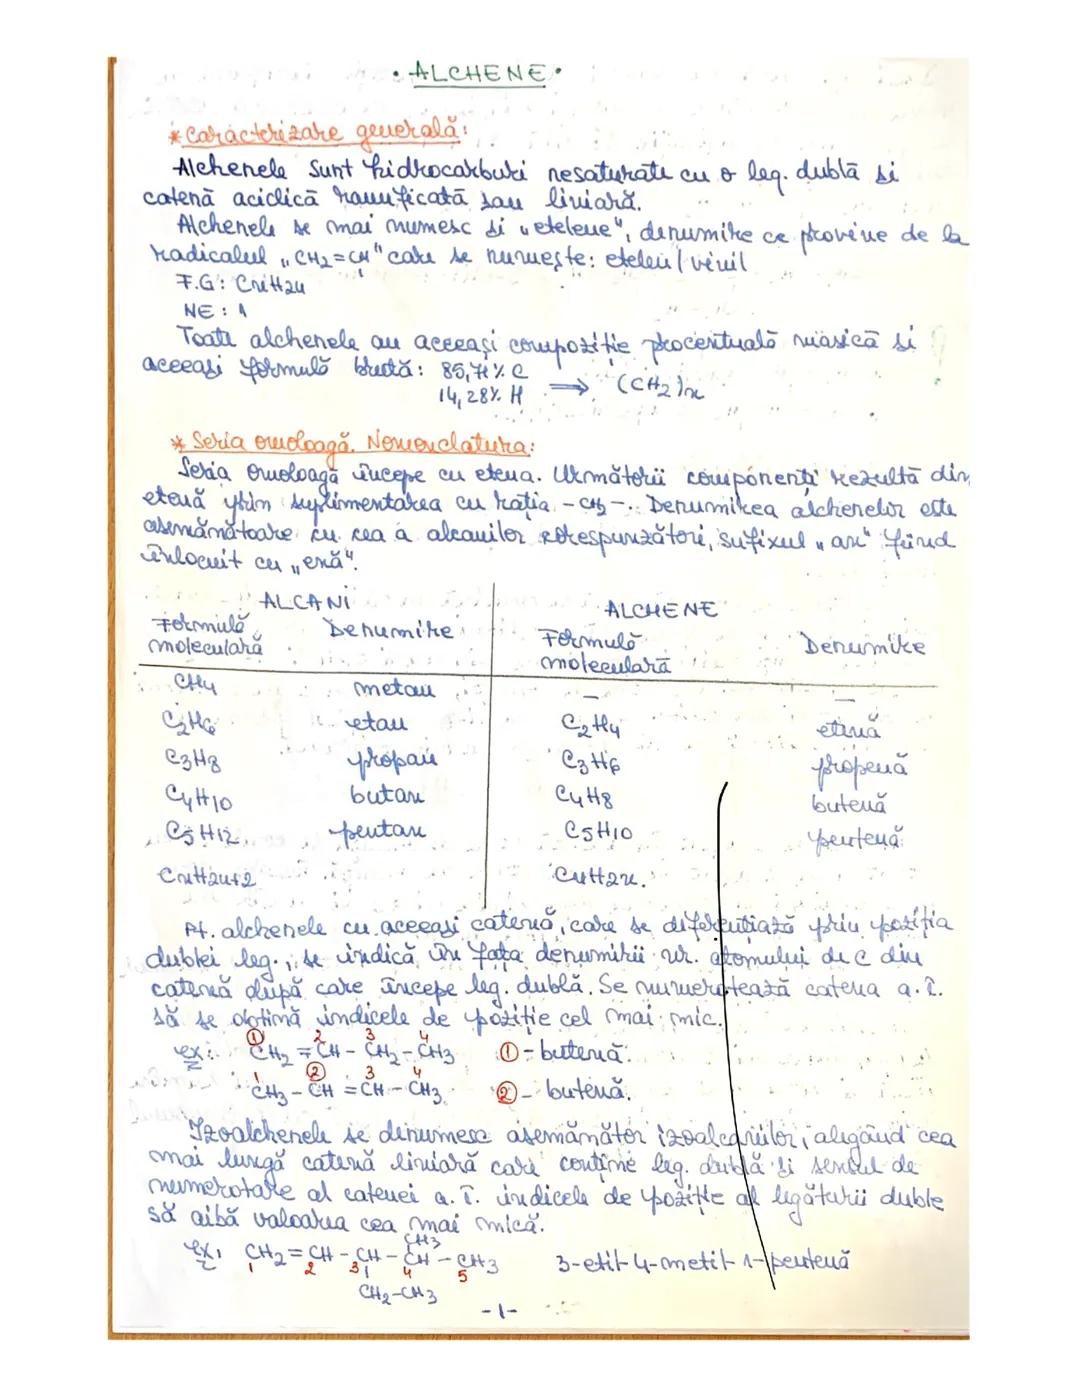 • ALCHENE •
* Caracterizare generală:
Alchenele sunt hidrocarburi nesaturate cu o leg. dublă si
catenă aciclică ramificată sau liniară.
Alchenele se mai numesc si „etelene", denumire ce provine de la
radicalul „CH2=CH" care se numește: etelen/vinil
F.G: CnH2n
NE: 1
Toate alchenele au aceeași compoziție procentuală masică si
aceeasi formulă brută: 85,71% C
14,28% H ⟹ (CH2)n
* Seria omoloagă. Nomenclatura:
Seria omoloagă începe cu etena. Următorii componenți rezultă din
etenă prin suplimentarea cu rația -CH2-. Denumirea alchenelor este
asemănătoare cu cea a alcanilor corespunzători, sufixul „an" fiind
înlocuit cu „enă".
ALCANI ALCHENE
Formulă moleculară Denumire Formulă moleculară Denumire
CH4 metan – –
C2H6 etan C2H4 etenă
C3H8 propan C3H6 propenă
C4H10 butan C4H8 butenă
C5H12 pentan C5H10 pentenă
CnH2n+2 CnH2n.
Pt. alchenele cu aceeasi catenă, care se diferențiază prin poziția
dublei leg., se indică în fața denumirii nr. atomului de C din
catenă după care începe leg. dublă. Se numerotează catena a.î.
să se obtină indicele de poziție cel mai mic.
ex: ① 2 3 4
CH2 = CH - CH2 - CH3 ① - butenă.
1 ② 3 4
CH3 - CH = CH - CH3 ② - butenă.
Izoalchenele se denumesc asemănător izoalcanilor, alegând cea
mai lungă catenă liniară care contine leg. dublă si sensul de
numerotare al catenei a.î. indicele de poziție al legăturii duble
să aibă valoarea cea mai mică.
CH3
ex: CH2 = CH - CH - CH - CH3 3-etil-4-metil-1-pentenă
1 2 3 4 5
CH2-CH3
-1-